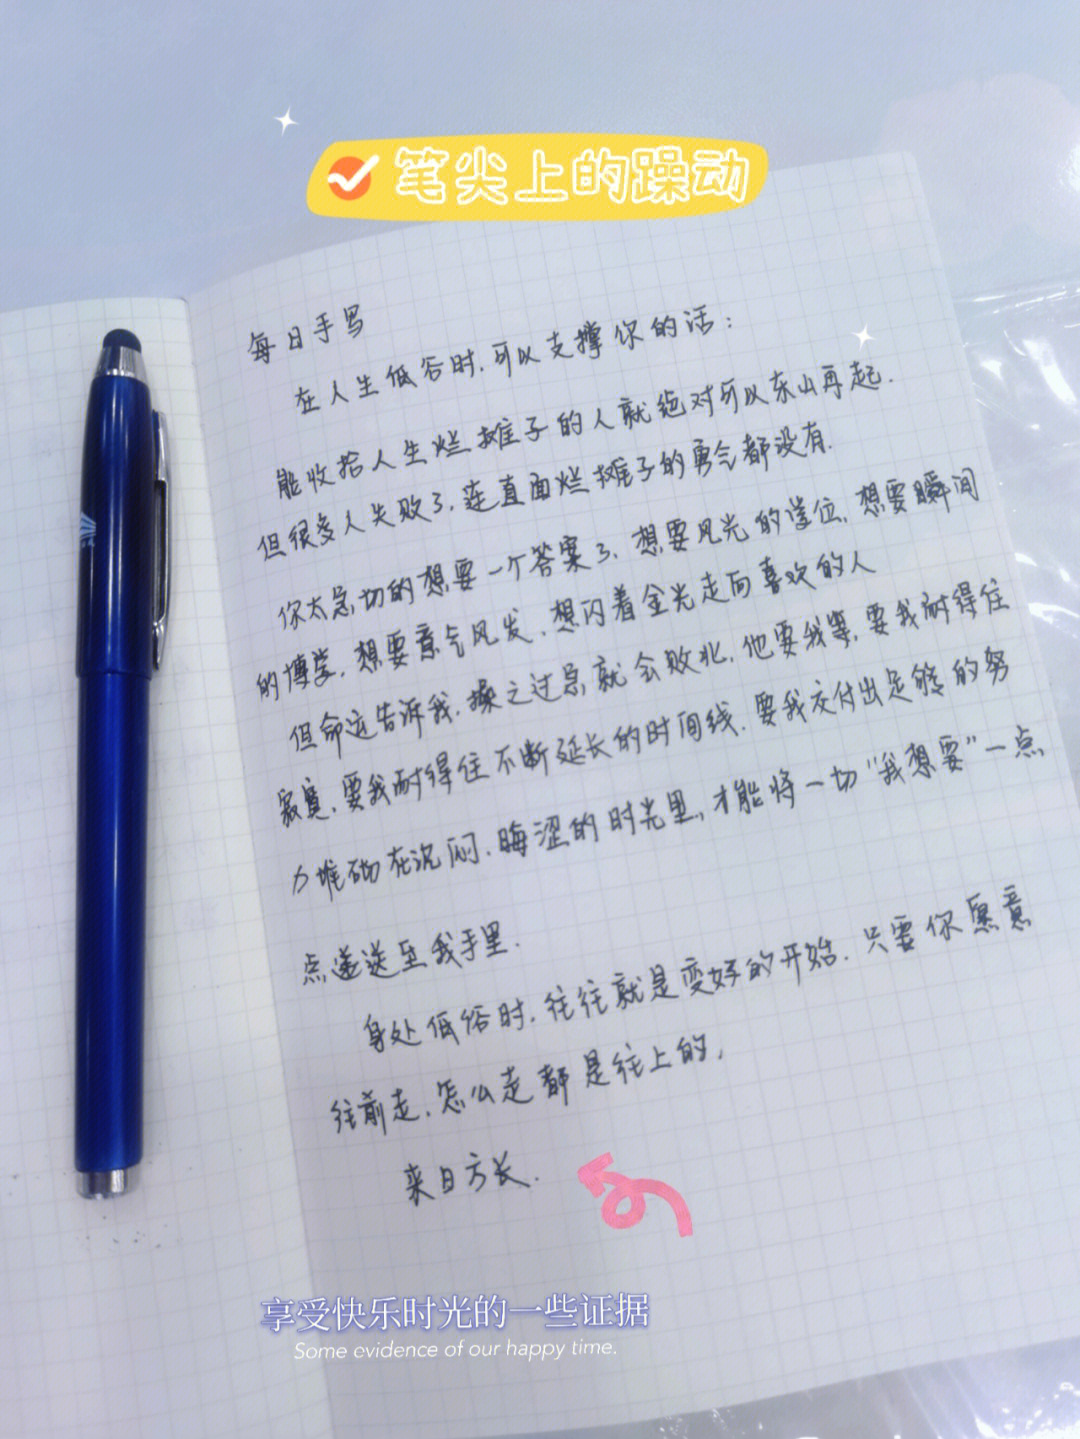 笔尖上的躁动
每日手写
在人生低谷时,可以支撑你的话:
能收拾人生烂摊子的人就绝对可以东山再起.
但很多人失败了,连直面烂摊子的勇气都没有.
你太急切的想要一个答案了,想要风光的学位,想要瞬间
的博学,想要意气风发,想闪着金光走向喜欢的人
但命运告诉我,操之过急就会败北,他要我等,要我耐得住
寂寞,要我耐得住不断延长的时间线,要我交付出足够的努
力堆砌在沉闷、晦涩的时光里,才能将一切“我想要”一点
点递送至我手里.
身处低俗时,往往就是变好的开始.只要你愿意
往前走,怎么走都是往上的,
来日方长.
享受快乐时光的一些证据
Some evidence of our happy time.